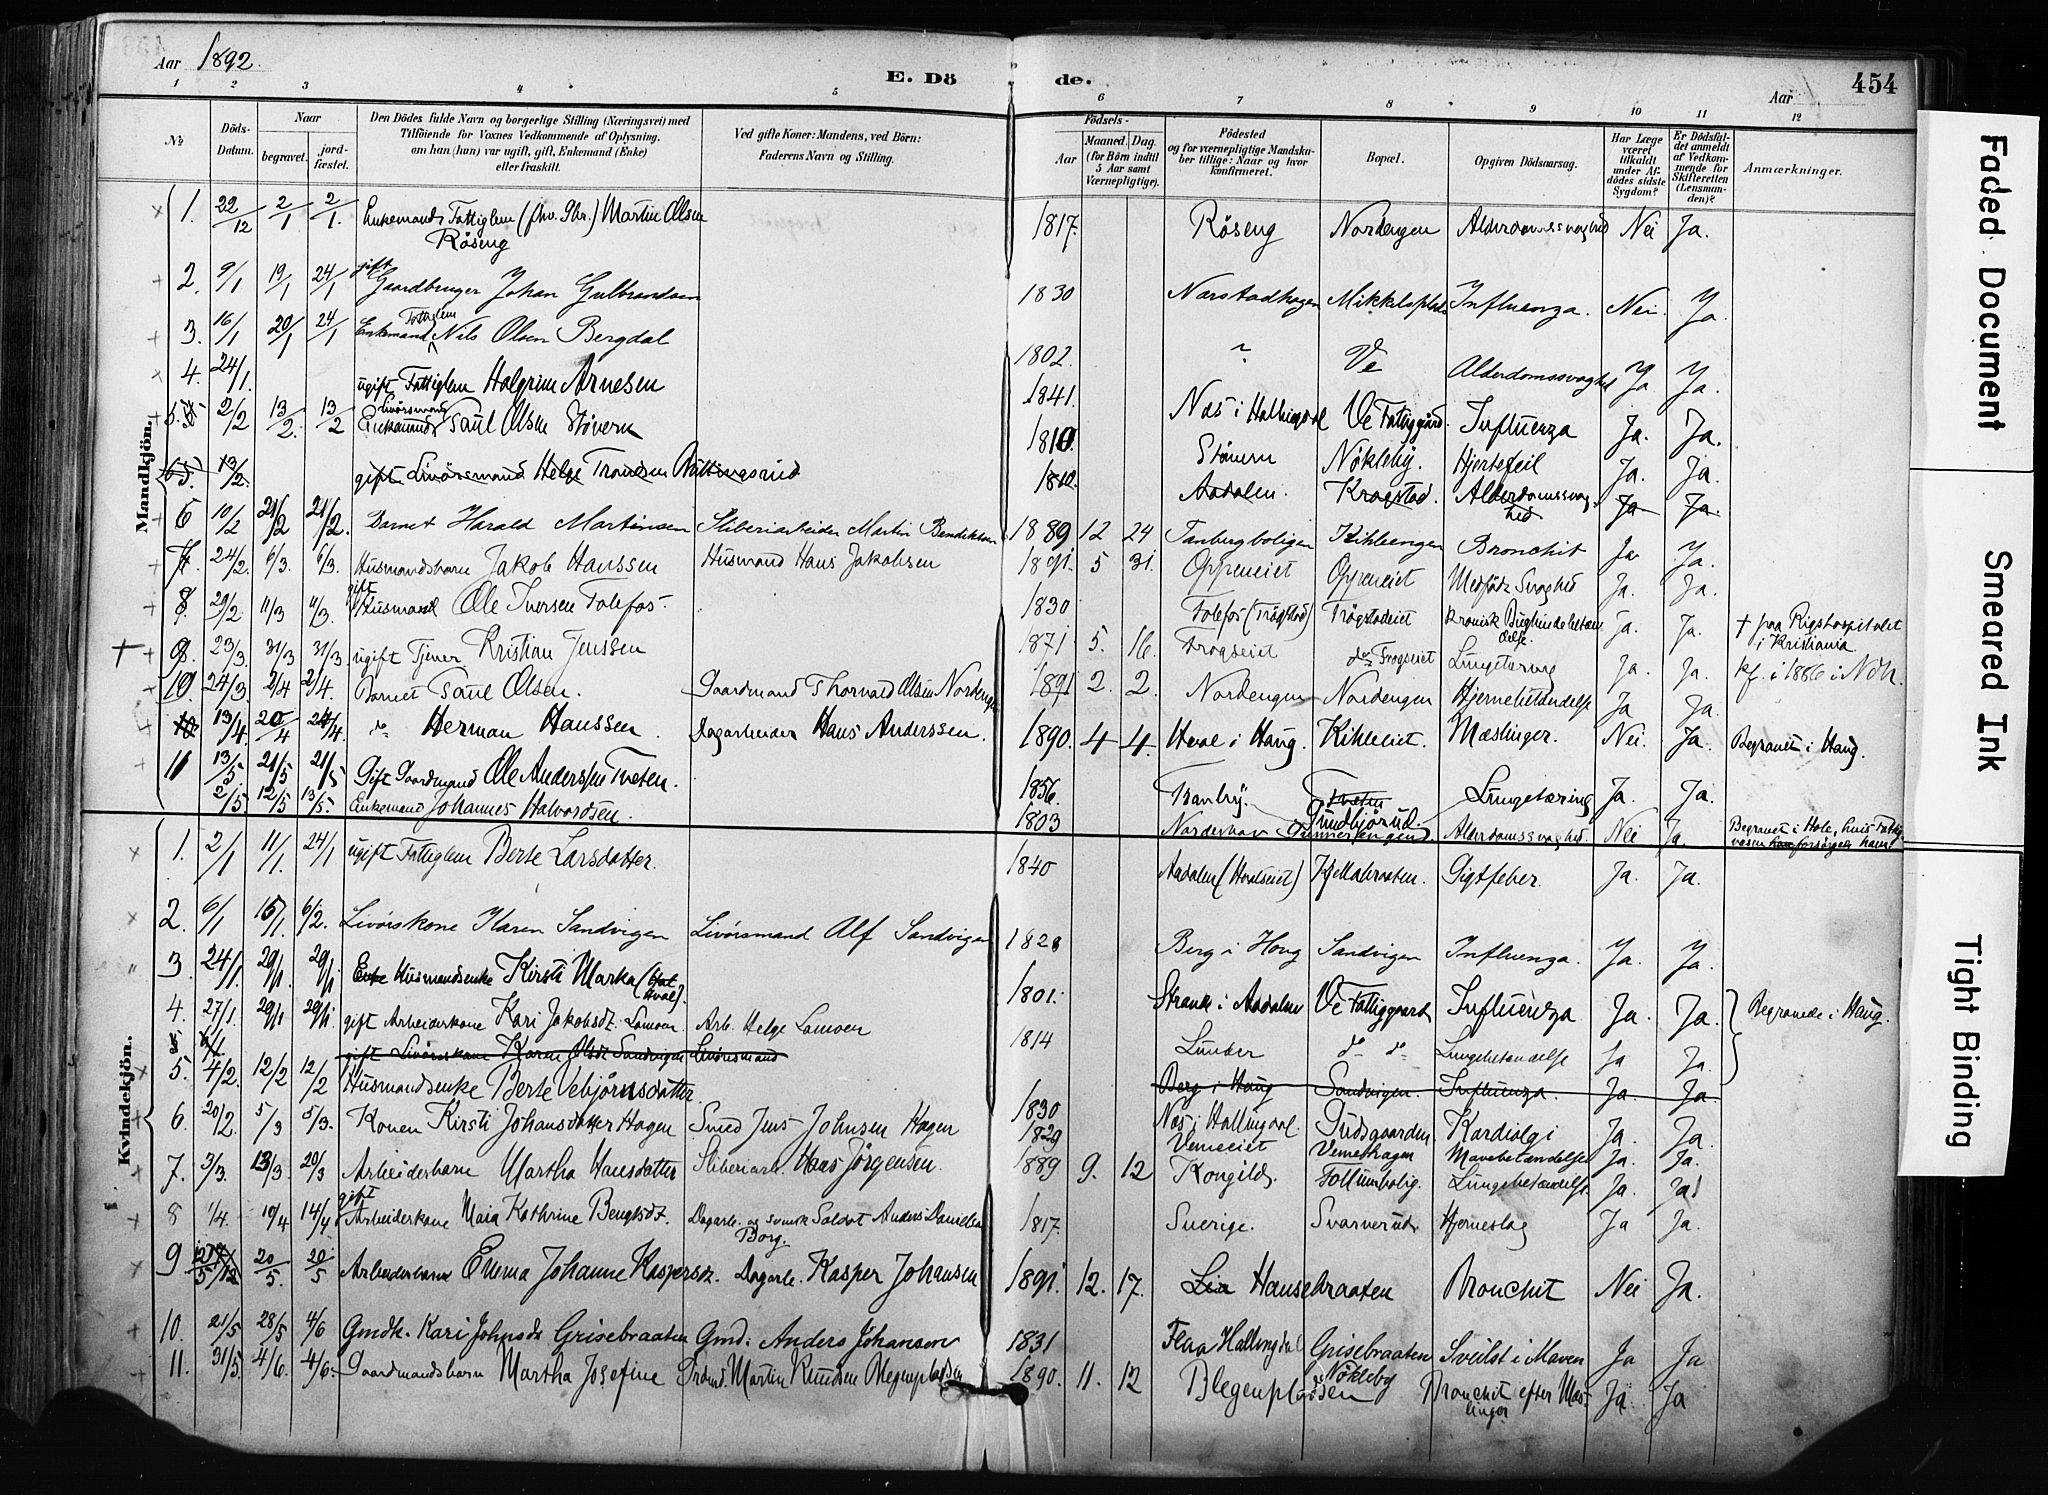 Aar 1892.
E. Dö de.
Aar
454
1 2 3 4 5 6 7 8 9 10 11 12
No
Döds-Datum.
Naar
begravet.
jord-fæstet.
Den Dödes fulde Navn og borgerlige Stilling (Næringsvei) med
Tilföiende for Voxnes Vedkommende af Oplysning,
om han (hun) var ugift, gift, Enkemand (Enke)
eller fraskilt.
Ved gifte Koner: Mandens, ved Börn:
Faderens Navn og Stilling.
Födsels-
Aar
Maaned. Dag.
(for Börn indtil
5 Aar samt
Værnepligtige).
Födested
og for værnepligtige Mandska-
ber tillige: Naar og hvor
konfirmeret.
Bopæl.
Opgiven Dödsaarsag.
Har Læge
været
tilkaldt
under Af-
dödes sidste
Sygdom?
Er Dödsfal-
det anmeldt
af Vedkom-
mende for
Skifteretten
(Lensman-
den)?
Anmærkninger.
Mandkjön.
1. 22/12 2/1 2/1. Enkemands Fattiglem (fhv. Gbr.) Martin Olsen Röseng 1817. Röseng Nordengen Alderdomssvaghed Nei Ja.
2. 9/1 19/1 24/1 gift Gaardbruger Johan Gulbrandsen 1830 Narstadhagen Mikkelsplads Influenza. Nei. Ja.
3. 16/1 20/1 24/1 Enkemand Fattiglem Nils Olsen Bergdal 1802. Ve Alderdomssvaghed Ja Ja.
4. 24/1. ugift Fattiglem Halgrim Arnesen 1841. Næs i Hallingdal Ve Fattiggård. Influenza Ja. Ja.
5. 2/2 13/2. 13/2 Livörsmand Enkemand Paul Olsen Stövern 1810. Stövern Nökleby. Hjertefeil Ja. Ja.
13/2. gift Livörsmand Helge Trondsen Buttingsrud 1810. Aadalen. Kragstad. Alderdomssvaghed Ja Ja.
6 10/2 21/2 21/2. Barnet Harald Martinsen Sliberiarbeider Martin Bendiktsen 1889 12 24 Tanbergboligen Kihleengen Bronchit Ja. Ja.
7. 24/2. 6/3. 6/3. Husmandsbarn Jakob Hanssen Husmand Hans Jakobsen 1891. 5 31. Oppeneiet Oppeneiet Medfödt Svaghed Ja. Ja.
8. 29/2. 11/3 11/3. gift Husmand Ole Iversen Folefos. 1830 Folefos (Trögstad) Trögstadeiet Kronisk Ja. Ja. + paa Rigshospitalet i Kristiania
9. 23/3. 31/3 31/3 ugift Tjener Kristian Jenssen 1871 5. 16. Frogseiet do Frogseiet Lungetæring Ja. Ja. kf. i 1886 i Ndh.
10. 24/3. 2/4 2/4. Barnet Paul Olsen. Gaardmand Thorvard Olsen Nordengen 1891 2. 2. Nordengen Nordengen Hjernebetændelse Ja Ja.
10. 13/4. 20/4 24/4 do Herman Hanssen. Dagarbeider Hans Anderssen. 1890. 4 4. Hval i Haug. Kihleeiet. Mæslinger. Nei. Ja. Begravet i Haug.
11 13/5 21/5 21/5 Gift Gaardmand Ole Anderssen Tveten. 1856. Tranby. Tveten Lungetæring Ja. Ja.
2/5. 12/5 13/5. Enkemand Johannes Halvordsen. 1803 Norderhov Alderdomssvaghed. Nei Ja. Begravet i Hole, hvis Fattigvæsen forsörgede ham.
Kvindekjön.
1. 2/1 11/1. 24/1 ugift Fattiglem Berte Larsdatter. 1840 Aadalen (Hvalseiet) Kjelleraaten. Gigtfeber. Ja. Ja.
2. 6/1 15/1. 6/2. Livörskone Karen Sandvigen Livörsmand Alf Sandvigen 1828 Berg i Houg Sandvigen Influenza. Ja. Ja.
3. 24/1. 29/1 29/1. Enke Husmandsenke Kirsti Marka (Hval). 1801. Strande i Aadalen Ve Fattiggaard Influenza Ja. Ja. Begravede i Haug.
4. 27/1. 29/1 29/1. gift Arbeiderkone Kari Jakobsdt. Lamoen Arb. Helge Lamoen 1814 Lunder do do Lungebetændelse Ja Ja.
6/1 gift Livörskone Karen Olsdt. Sandvigen Livörsmand Berg i Haug Sandvigen. Influenza. Ja Ja.
5. 4/2. 12/2 12/2 Husmandsenke Berte Vebjörnsdatter. 1830 Næs i Hallingdal. Gudsgaarden Kardialgi Ja. Ja.
6. 20/2. 5/3 5/3. Konen Kirsti Johansdatter Hagen Smed Jens Johnsen Hagen 1829 Vemeeiet Vemehagen Mavebetændelse Ja. Ja.
7. 3/3. 13/3 20/3 Arbeiderbarn Martha Hansdatter Sliberiarb. Hans Jörgensen. 1889 9. 12 Kongild. Follumbolig. Lungebetændelse Ja. Ja
8 1/4. 10/4 14/4 gift Arbeiderkone Maia Kathrine Bengtsdt. Dagarb. og svensk Soldat Anders Danielsen Borg. 1817. Sverige. Svarverud. Hjerneslag Ja Ja.
9 12/5 20/5. 20/5 Arbeiderbarn Emma Johanne Kaspersdt. Dagarb. Kasper Johansen 1891 12. 17. Lia Hansebraaten Bronchit Nei Ja.
10. 21/5 28/5 4/6 Gmdk. Kari Johnsdt Grisebraaten Gmd: Anders Johansen 1831 Flaa Hallingdal Grisebraaten Sveilst i Maven Ja Ja
11. 31/5. 4/6. 4/6. Gaardmandsbarn Martha Josefine Grdmd. Martin Knudsen Blegenpladsen 1890. 11. 12 Blegenpladsen Nökleby Bronchit efter Mæslinger Ja Ja
Faded Document
Smeared Ink
Tight Binding